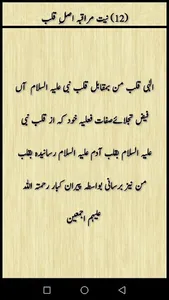 (12) نیت مراقبہ اصل قلب
الٰہی قلب من بمقابل قلب نبی علیہ السلام آں
فیض تجلائے صفات فعلیہ خود کہ از قلب نبی
علیہ السلام بقلب آدم علیہ السلام رسانیدہ بقلب
من نیز برسانی بواسطہ پیران کبار رحمتہ اللہ
علیہم اجمعین